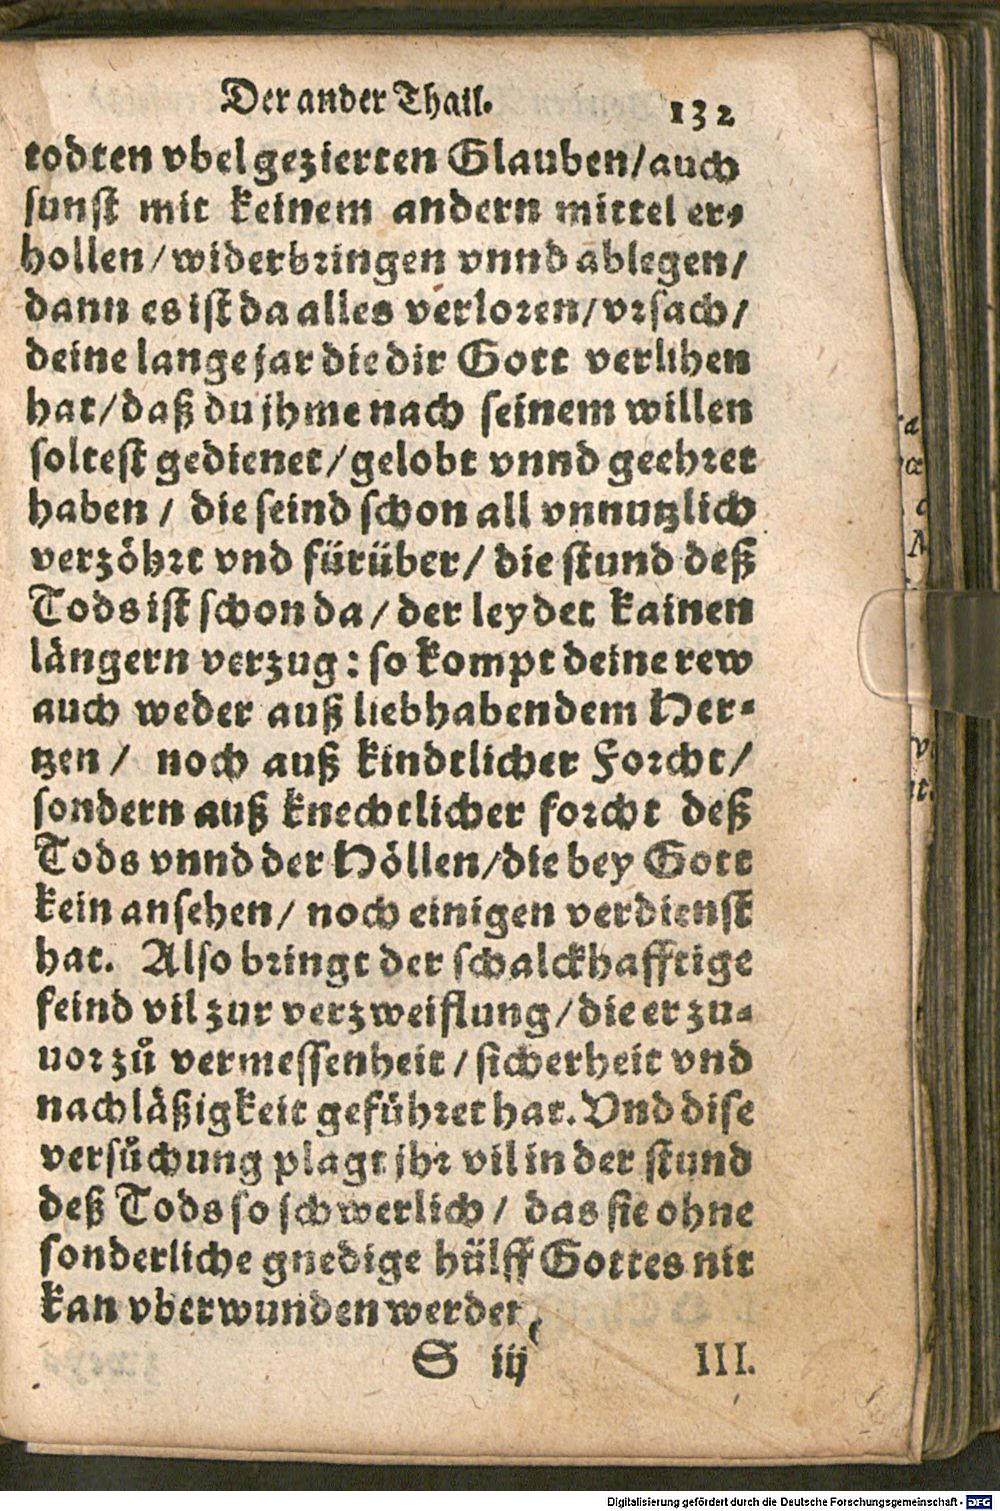 Der ander Thail. 132
todten vbel gezierten Glauben/auch
sunst mit keinem andern mittel er⸗
hollen/widerbringen vnnd ablegen/
dann es ist da alles verloren/vrsach/
deine lange jar die dir Gott verlihen
hat/daß du jhme nach seinem willen
soltest gedienet/gelobt vnnd geehret
haben/ die seind schon all vnnutzlich
verzöhrt vnd fürüber/ die stund deß
Tods ist schon da/ der leydet kainen
längern verzug: so kompt deine rew
auch weder auß liebhabendem Her⸗
tzen/ noch auß kindtlicher Forcht/
sondern auß knechtlicher forcht deß
Tods vnnd der Höllen/die bey Gott
kein ansehen/ noch einigen verdienst
hat. Also bringt der schalckhafftige
feind vil zur verzweiflung/die er zu⸗
uor zů vermessenheit/sicherheit vnd
nachläßigkeit geführet hat. Vnd dise
versůchung plagt jhr vil in der stund
deß Tods so schwerlich/ das sie ohne
sonderliche gnedige hülff Gottes nit
kan vberwunden werden.
S iij III.
Digitalisierung gefördert durch die Deutsche Forschungsgemeinschaft - DFG